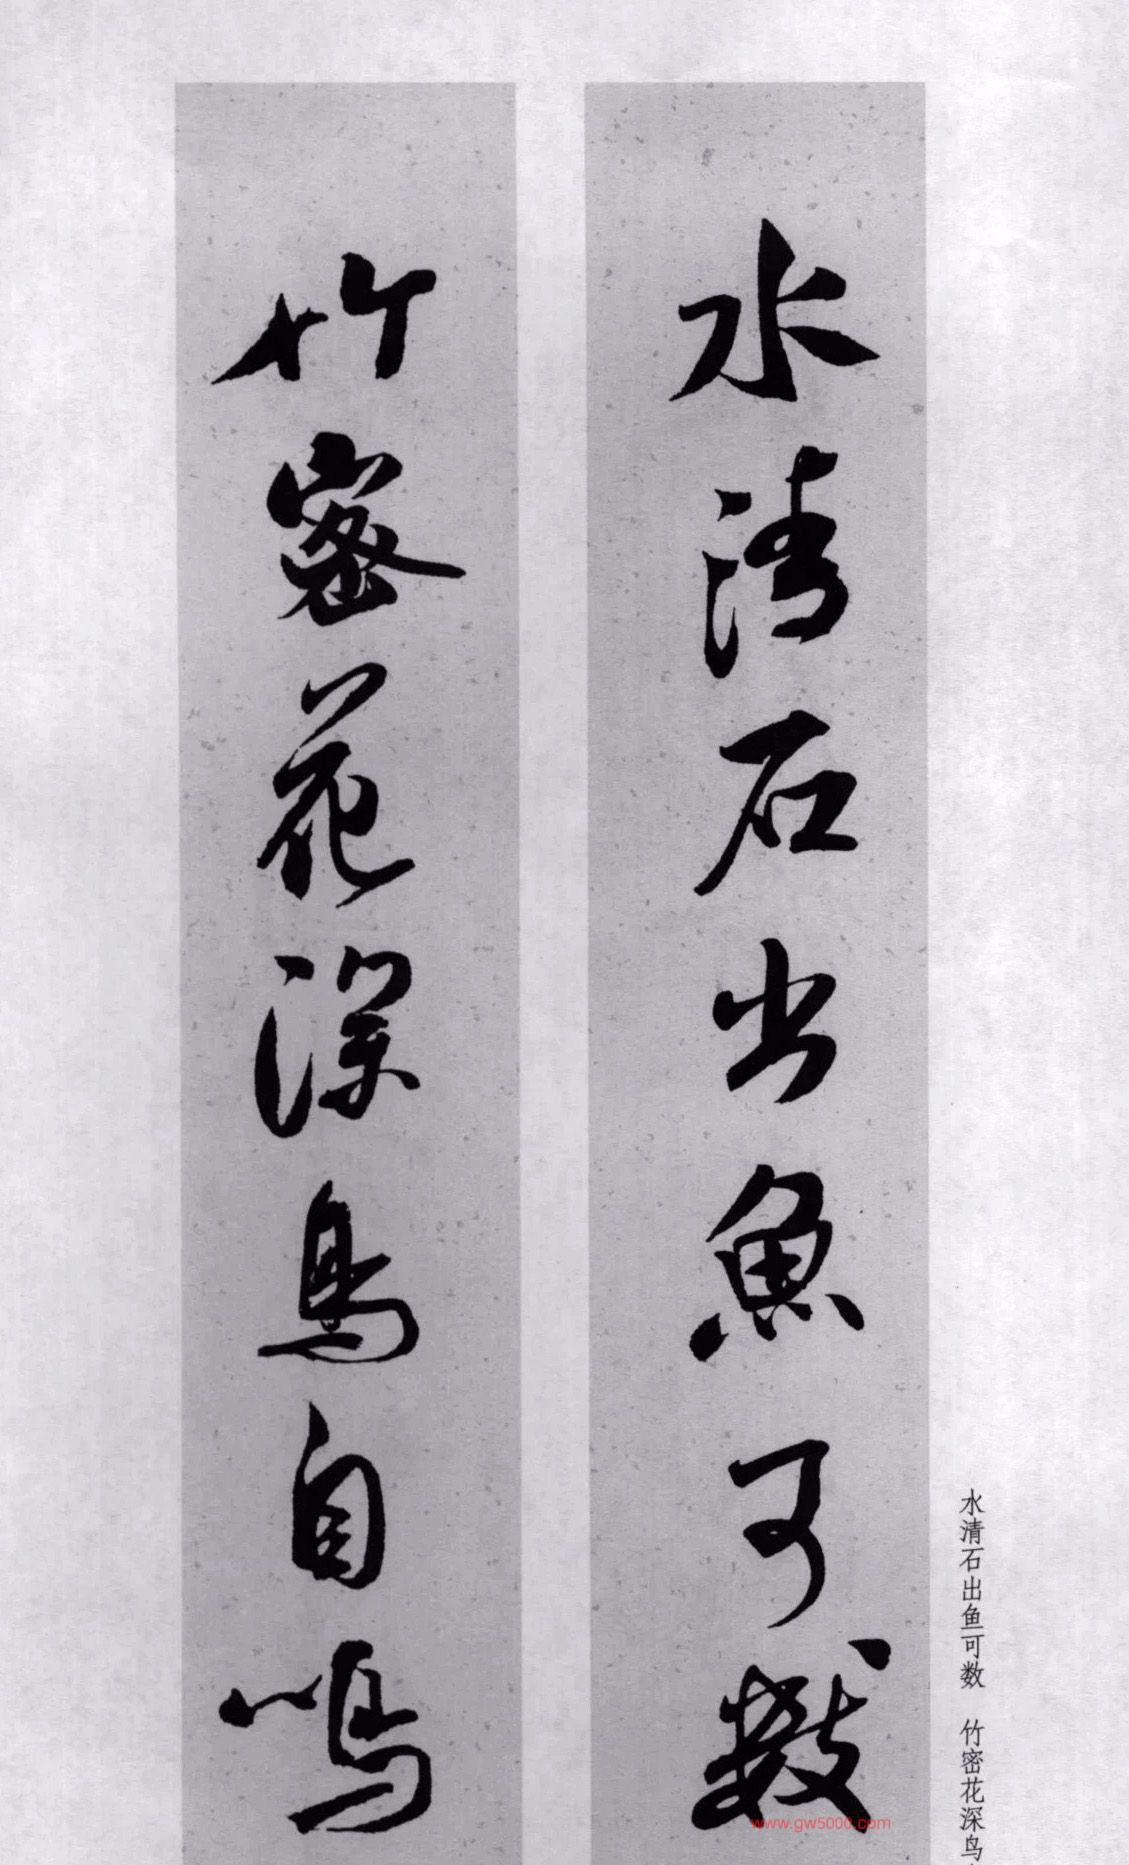 水清石出魚可數
竹密花深鳥自鳴
水清石出鱼可数　竹密花深鸟
www.gw5000.com